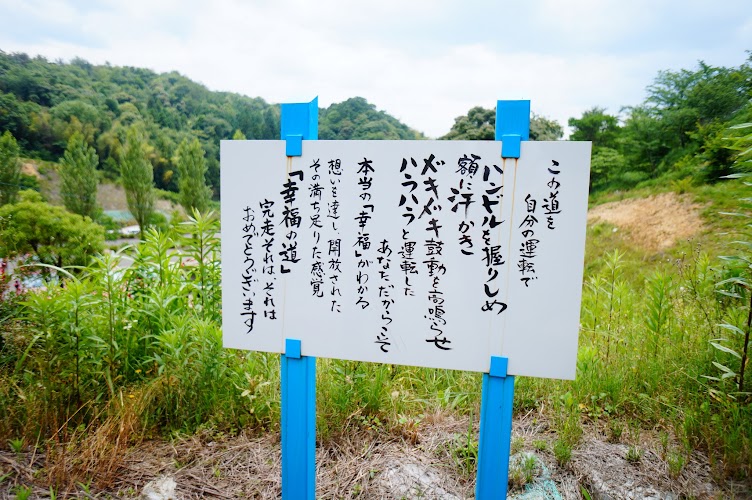 この道を
自分の運転で
ハンドルを握りしめ
額に汗かき
ドキドキ鼓動を高鳴らせ
ハラハラと運転した
あなただからこそ
本当の「幸福」がわかる
想いを達し、開放された
その満ち足りた感覚
「幸福の道」
完走それは、それは
おめでとうございます